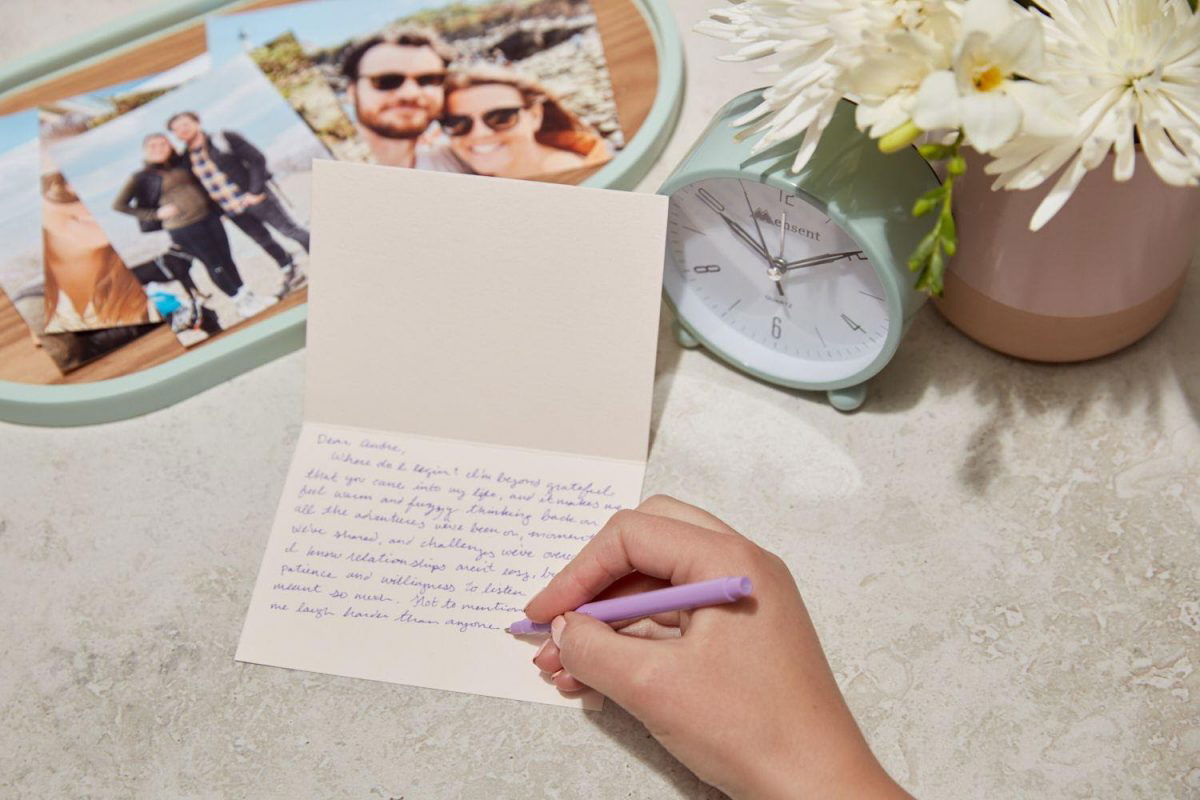 Dear Andre,
Where do I begin? I'm beyond grateful
that you came into my life, and it makes me
feel warm and fuzzy thinking back on
all the adventures we've been on, moments
we've shared, and challenges we've
I know relationships aren't easy,
patience and willingness to listen
meant so much. Not to mention
me laugh harder than anyone
12
2
4
6
8
10
Mensent
QUARTZ